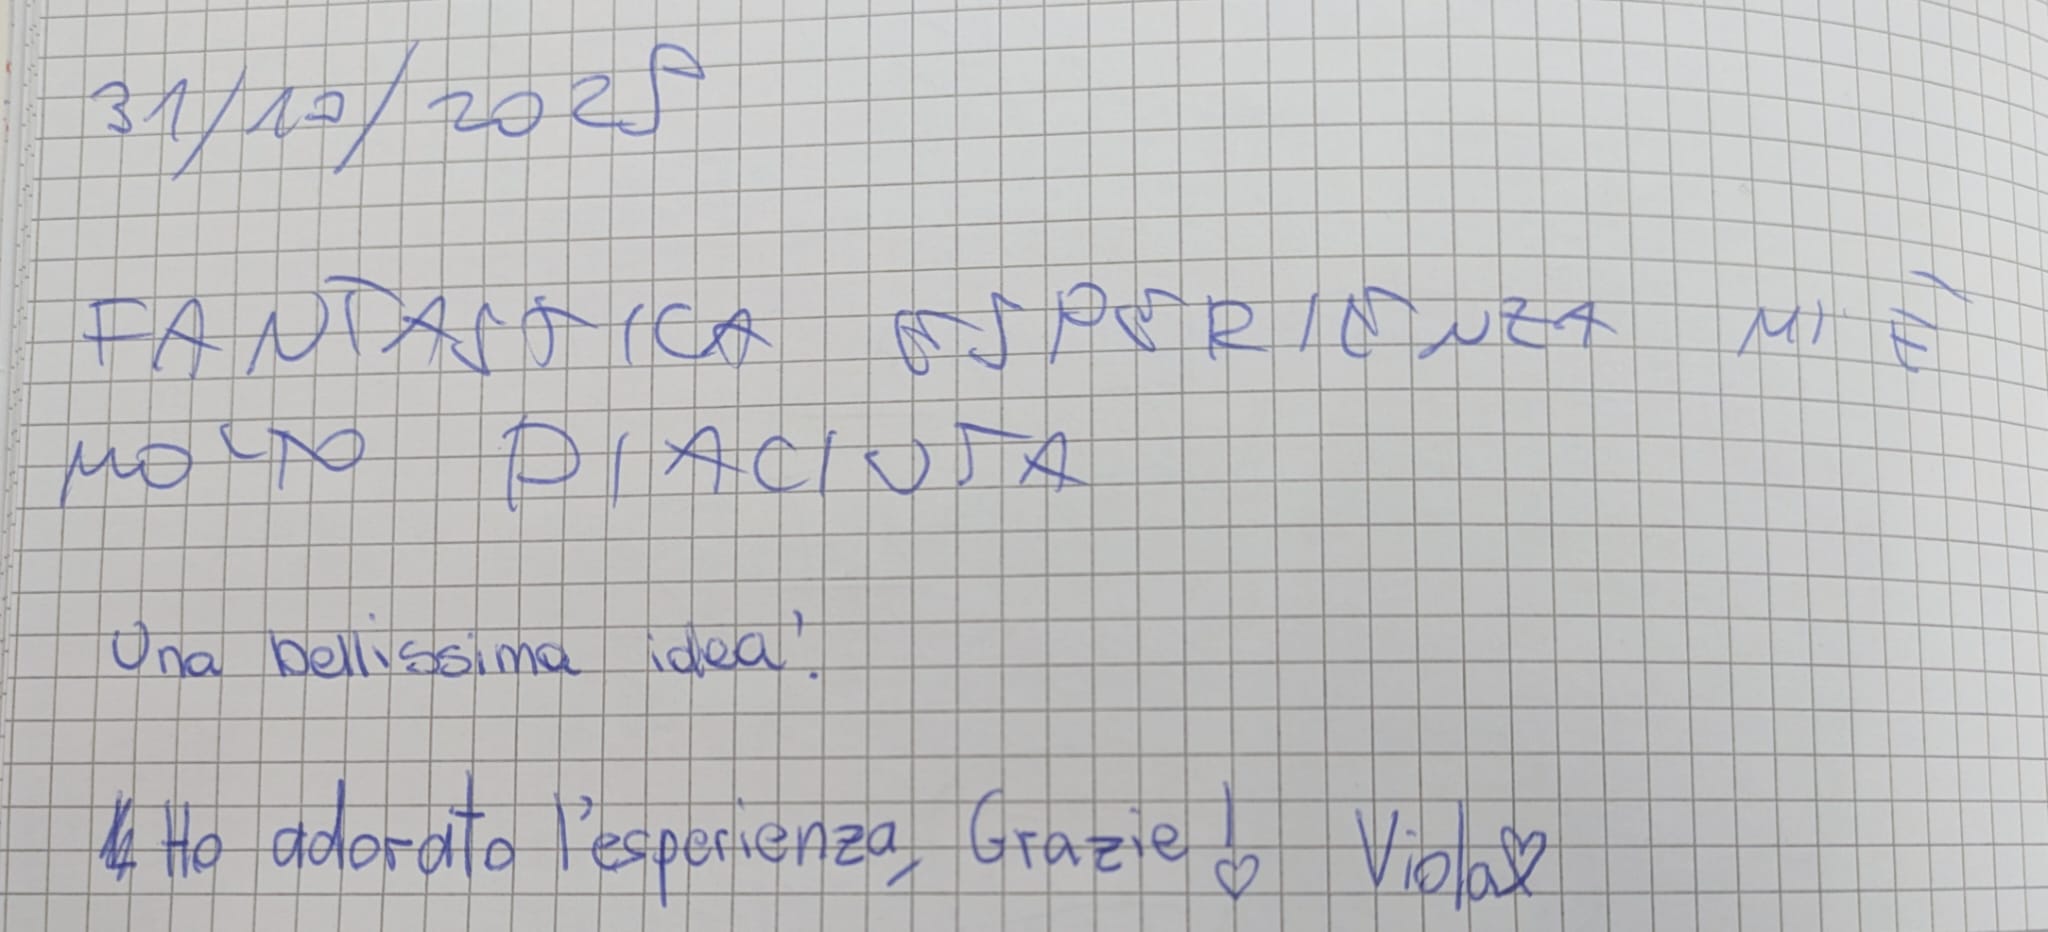 31/10/2025
FANTASTICA ESPERIENZA MI È
MOLTO PIACIUTA
Una bellissima idea!
Ho adorato l'esperienza, Grazie! Viola♡